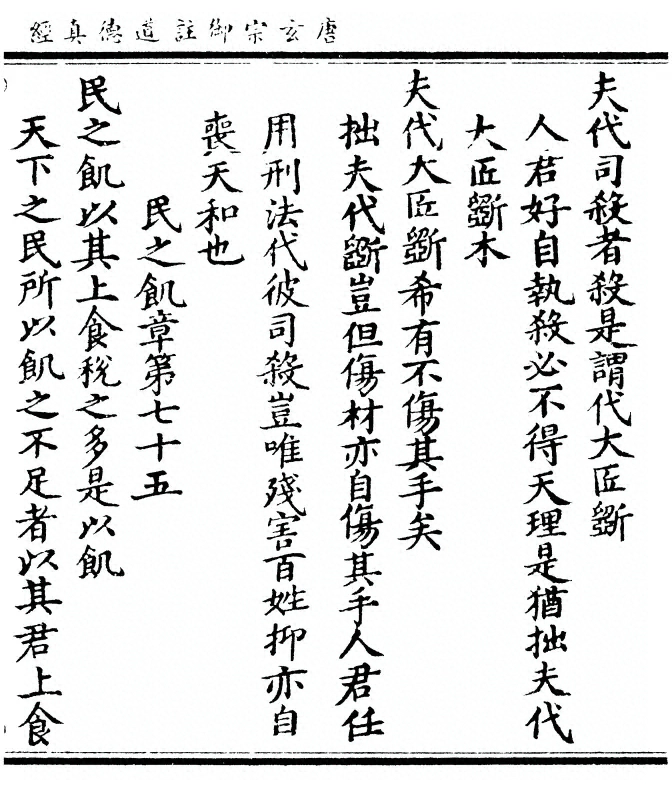 唐玄宗御註道德真經
夫代司殺者殺是謂代大匠斲
人君好自執殺必不得天理是猶拙夫代
大匠斲木
夫代大匠斲希有不傷其手矣
拙夫代斲豈但傷材亦自傷其手人君任
用刑法代彼司殺豈唯殘害百姓抑亦自
喪天和也
民之飢章第七十五
民之飢以其上食稅之多是以飢
天下之民所以飢之不足者以其君上食